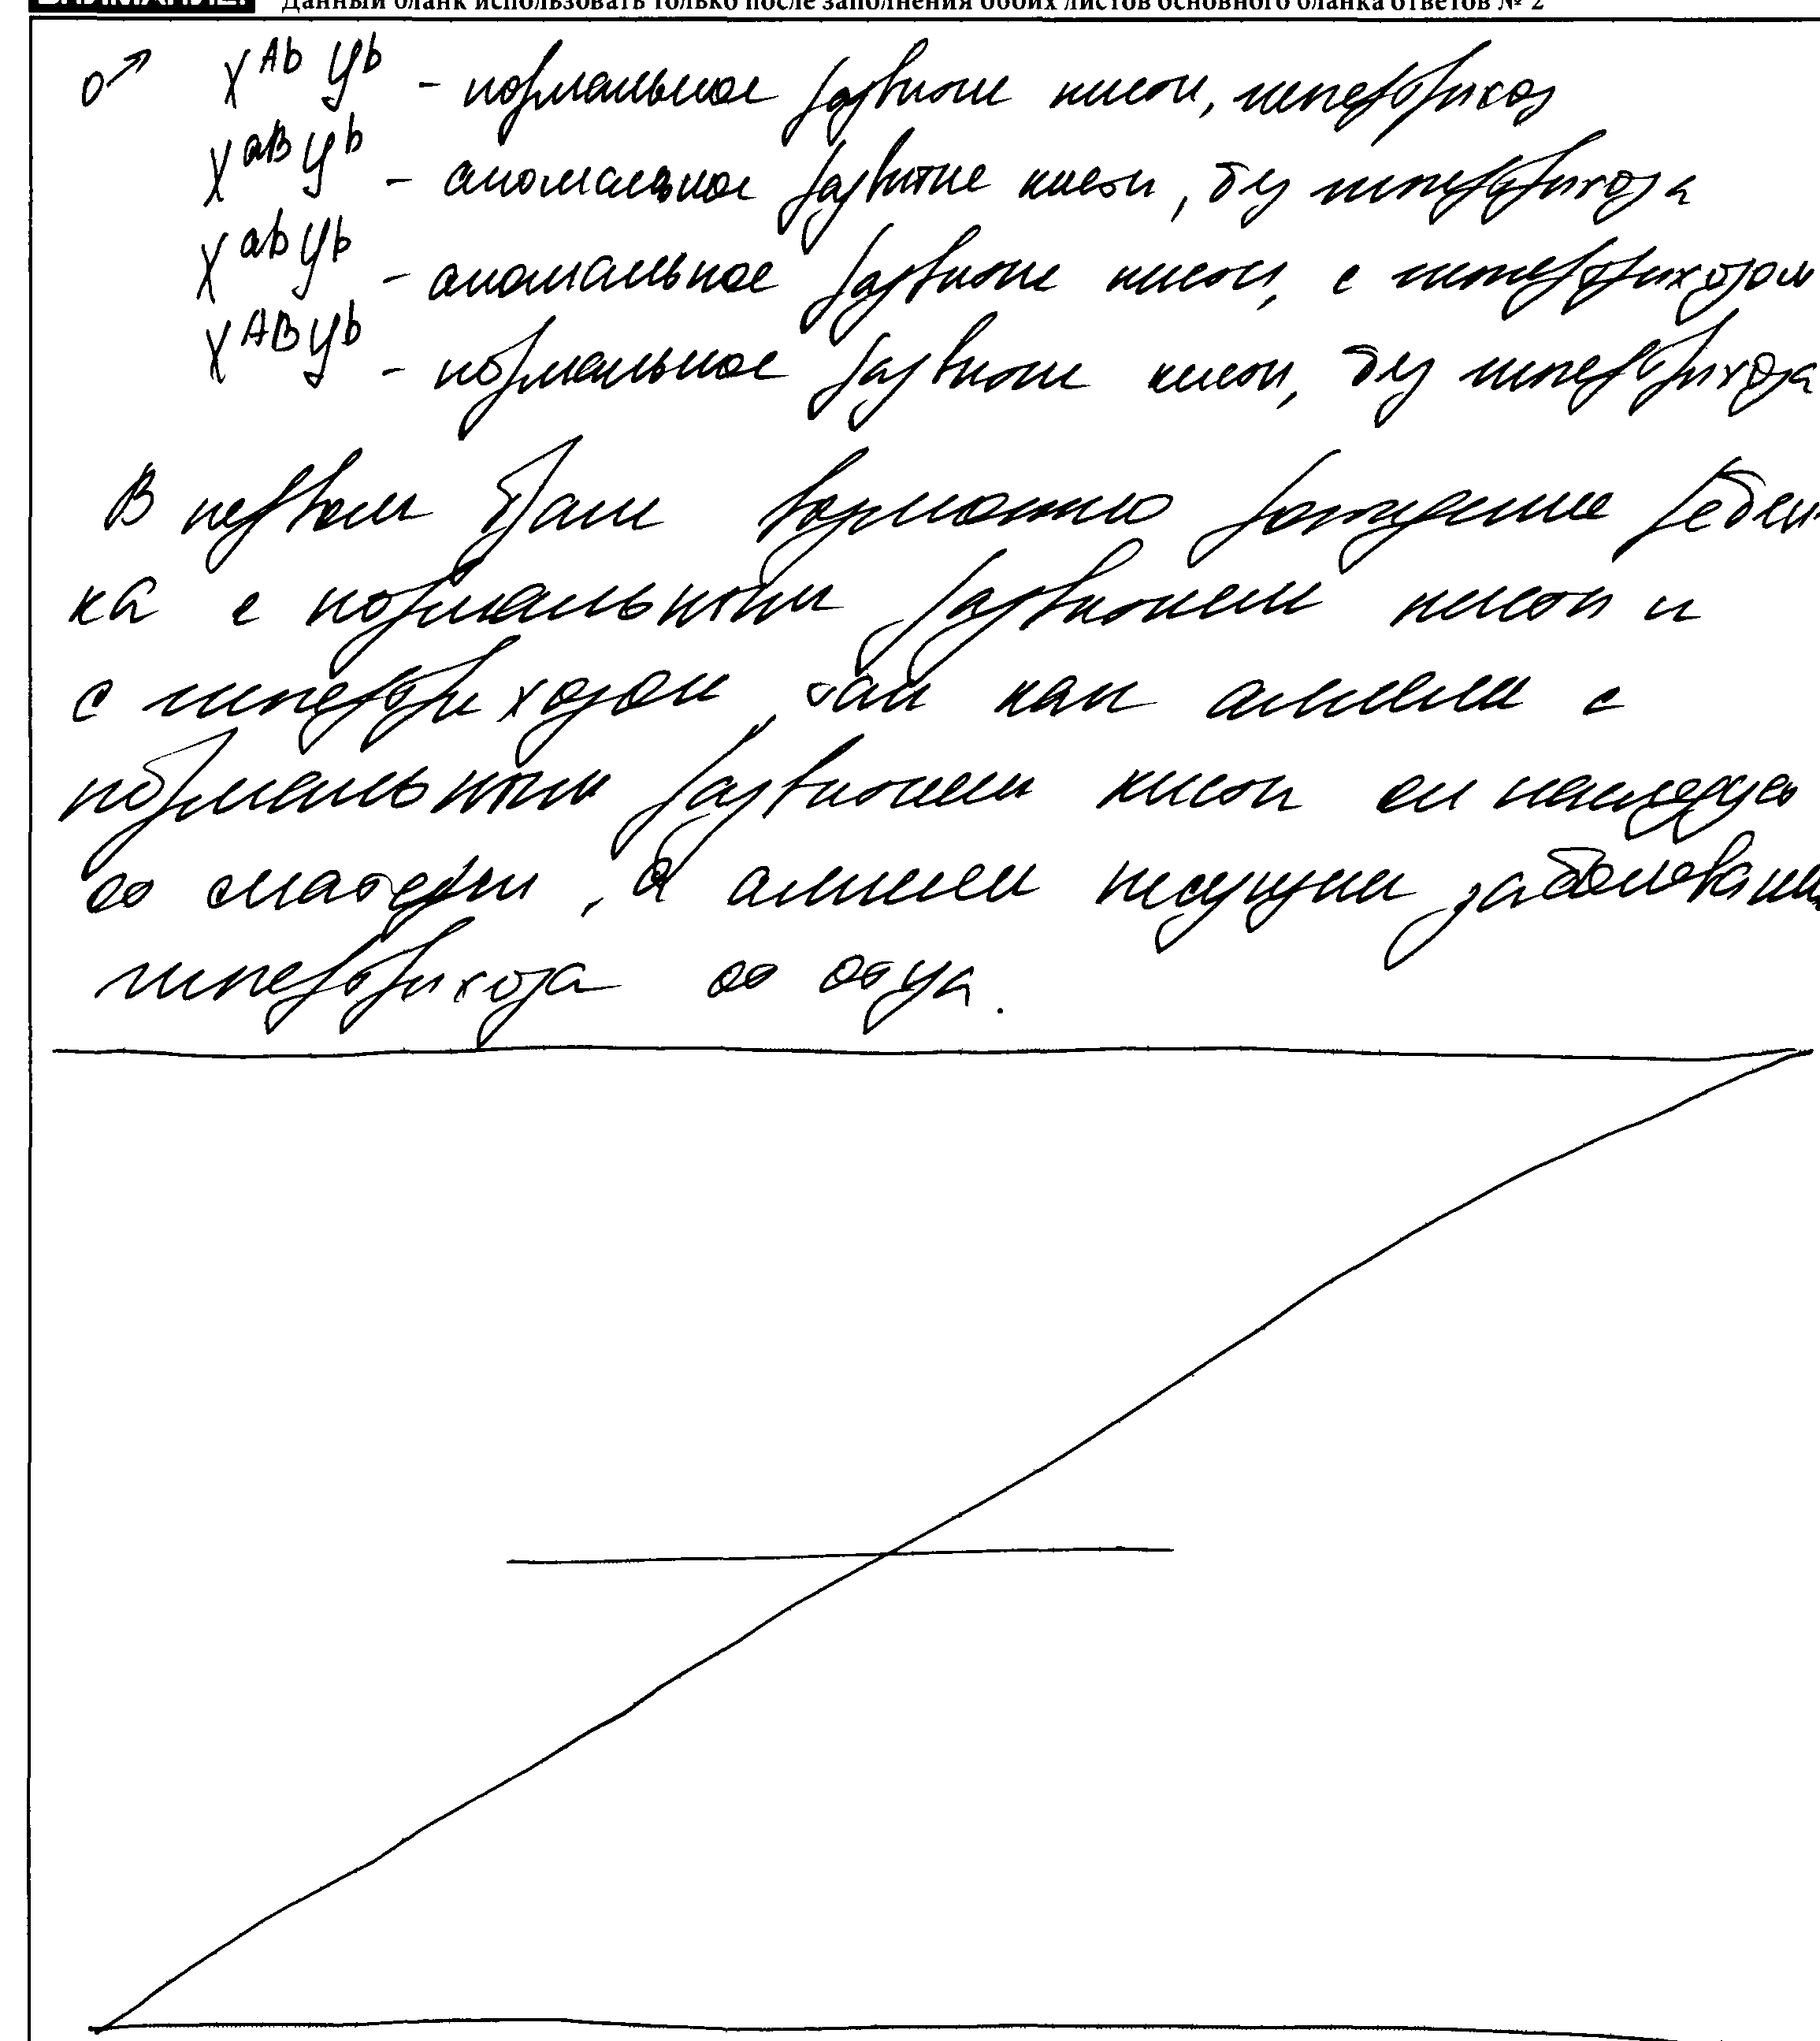 ВНИМАНИЕ! Данный бланк использовать только после заполнения обоих листов основного бланка ответов № 2
♂ X^Ab Y^b - нормальное развитие кисти, гипертрихоз
X^aB Y^b - аномальное развитие кисти, без гипертрихоза
X^ab Y^b - аномальное развитие кисти, с гипертрихозом
X^AB Y^b - нормальное развитие кисти, без гипертрихоза
В первом браке возможно рождение ребен-
ка с нормальным развитием кисти и
с гипертрихозом, так как аллели с
нормальным развитием кисти он наследует
от матери, а аллели несущий заболевание
гипертрихоза от отца.